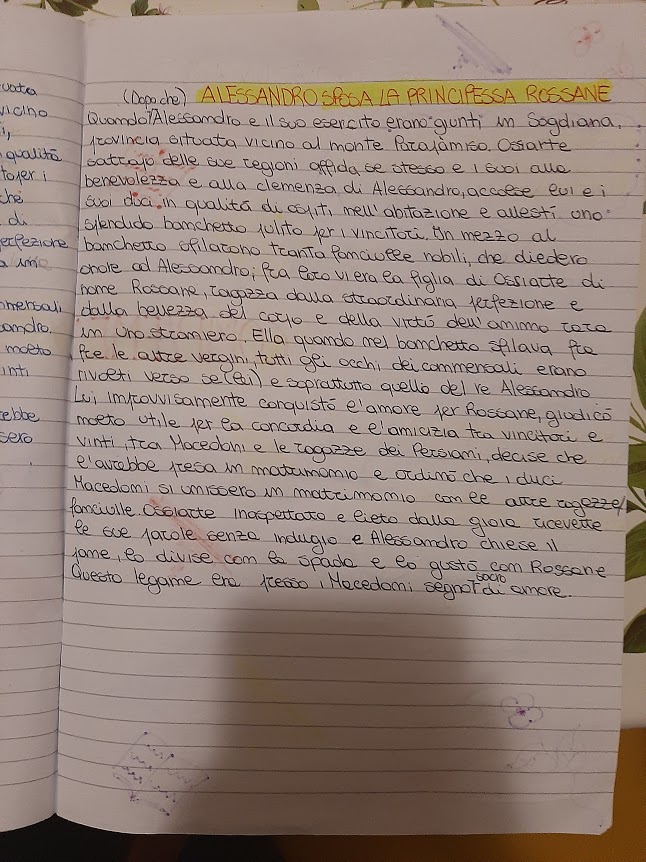 uata
vicino
i,
qualità
to per i
che
di
perfezione
mensali
andro.
moeto
inti
rebbe
sero
(Dopo che) ALESSANDRO SPOSA LA PRINCIPESSA ROSSANE
Quando Alessandro e il suo esercito erano giunti in Sogdiana,
provincia situata vicino al monte Parapamiso. Ossiarte
satrapo delle sue regioni affida se stesso e i suoi alla
benevolezza e alla clemenza di Alessandro, accolse lui e i
suoi duci in qualità di ospiti nell'abitazione e allestì uno
splendido banchetto pulito per i vincitori. In mezzo al
banchetto sfilarono trenta fanciulle nobili, che diedero
onore ad Alessandro; fra loro vi era la figlia di Ossiarte di
nome Rossane, ragazza dalla straordinaria perfezione e
dalla bellezza del corpo e della virtù dell'animo rara
in uno straniero. Ella quando nel banchetto sfilava fra
fre le altre vergini, tutti gli occhi dei commensali erano
rivolti verso se (lei) e soprattutto quello del re Alessandro
Lui improvvisamente conquistò l'amore per Rossane, giudicò
molto utile per la concordia e l'amicizia tra vincitori e
vinti, tra Macedoni e le ragazze dei Persiani, decise che
l'avrebbe presa in matrimonio e ordinò che i duci
Macedoni si unissero in matrimonio con le altre ragazze/
fanciulle. Ossiarte inaspettato e lieto dalla gioia ricevette
le sue parole senza indugio e Alessandro chiese il
pane, lo divise con la spada e lo gustò con Rossane
Questo legame era presso i Macedoni segno sacro di amore.